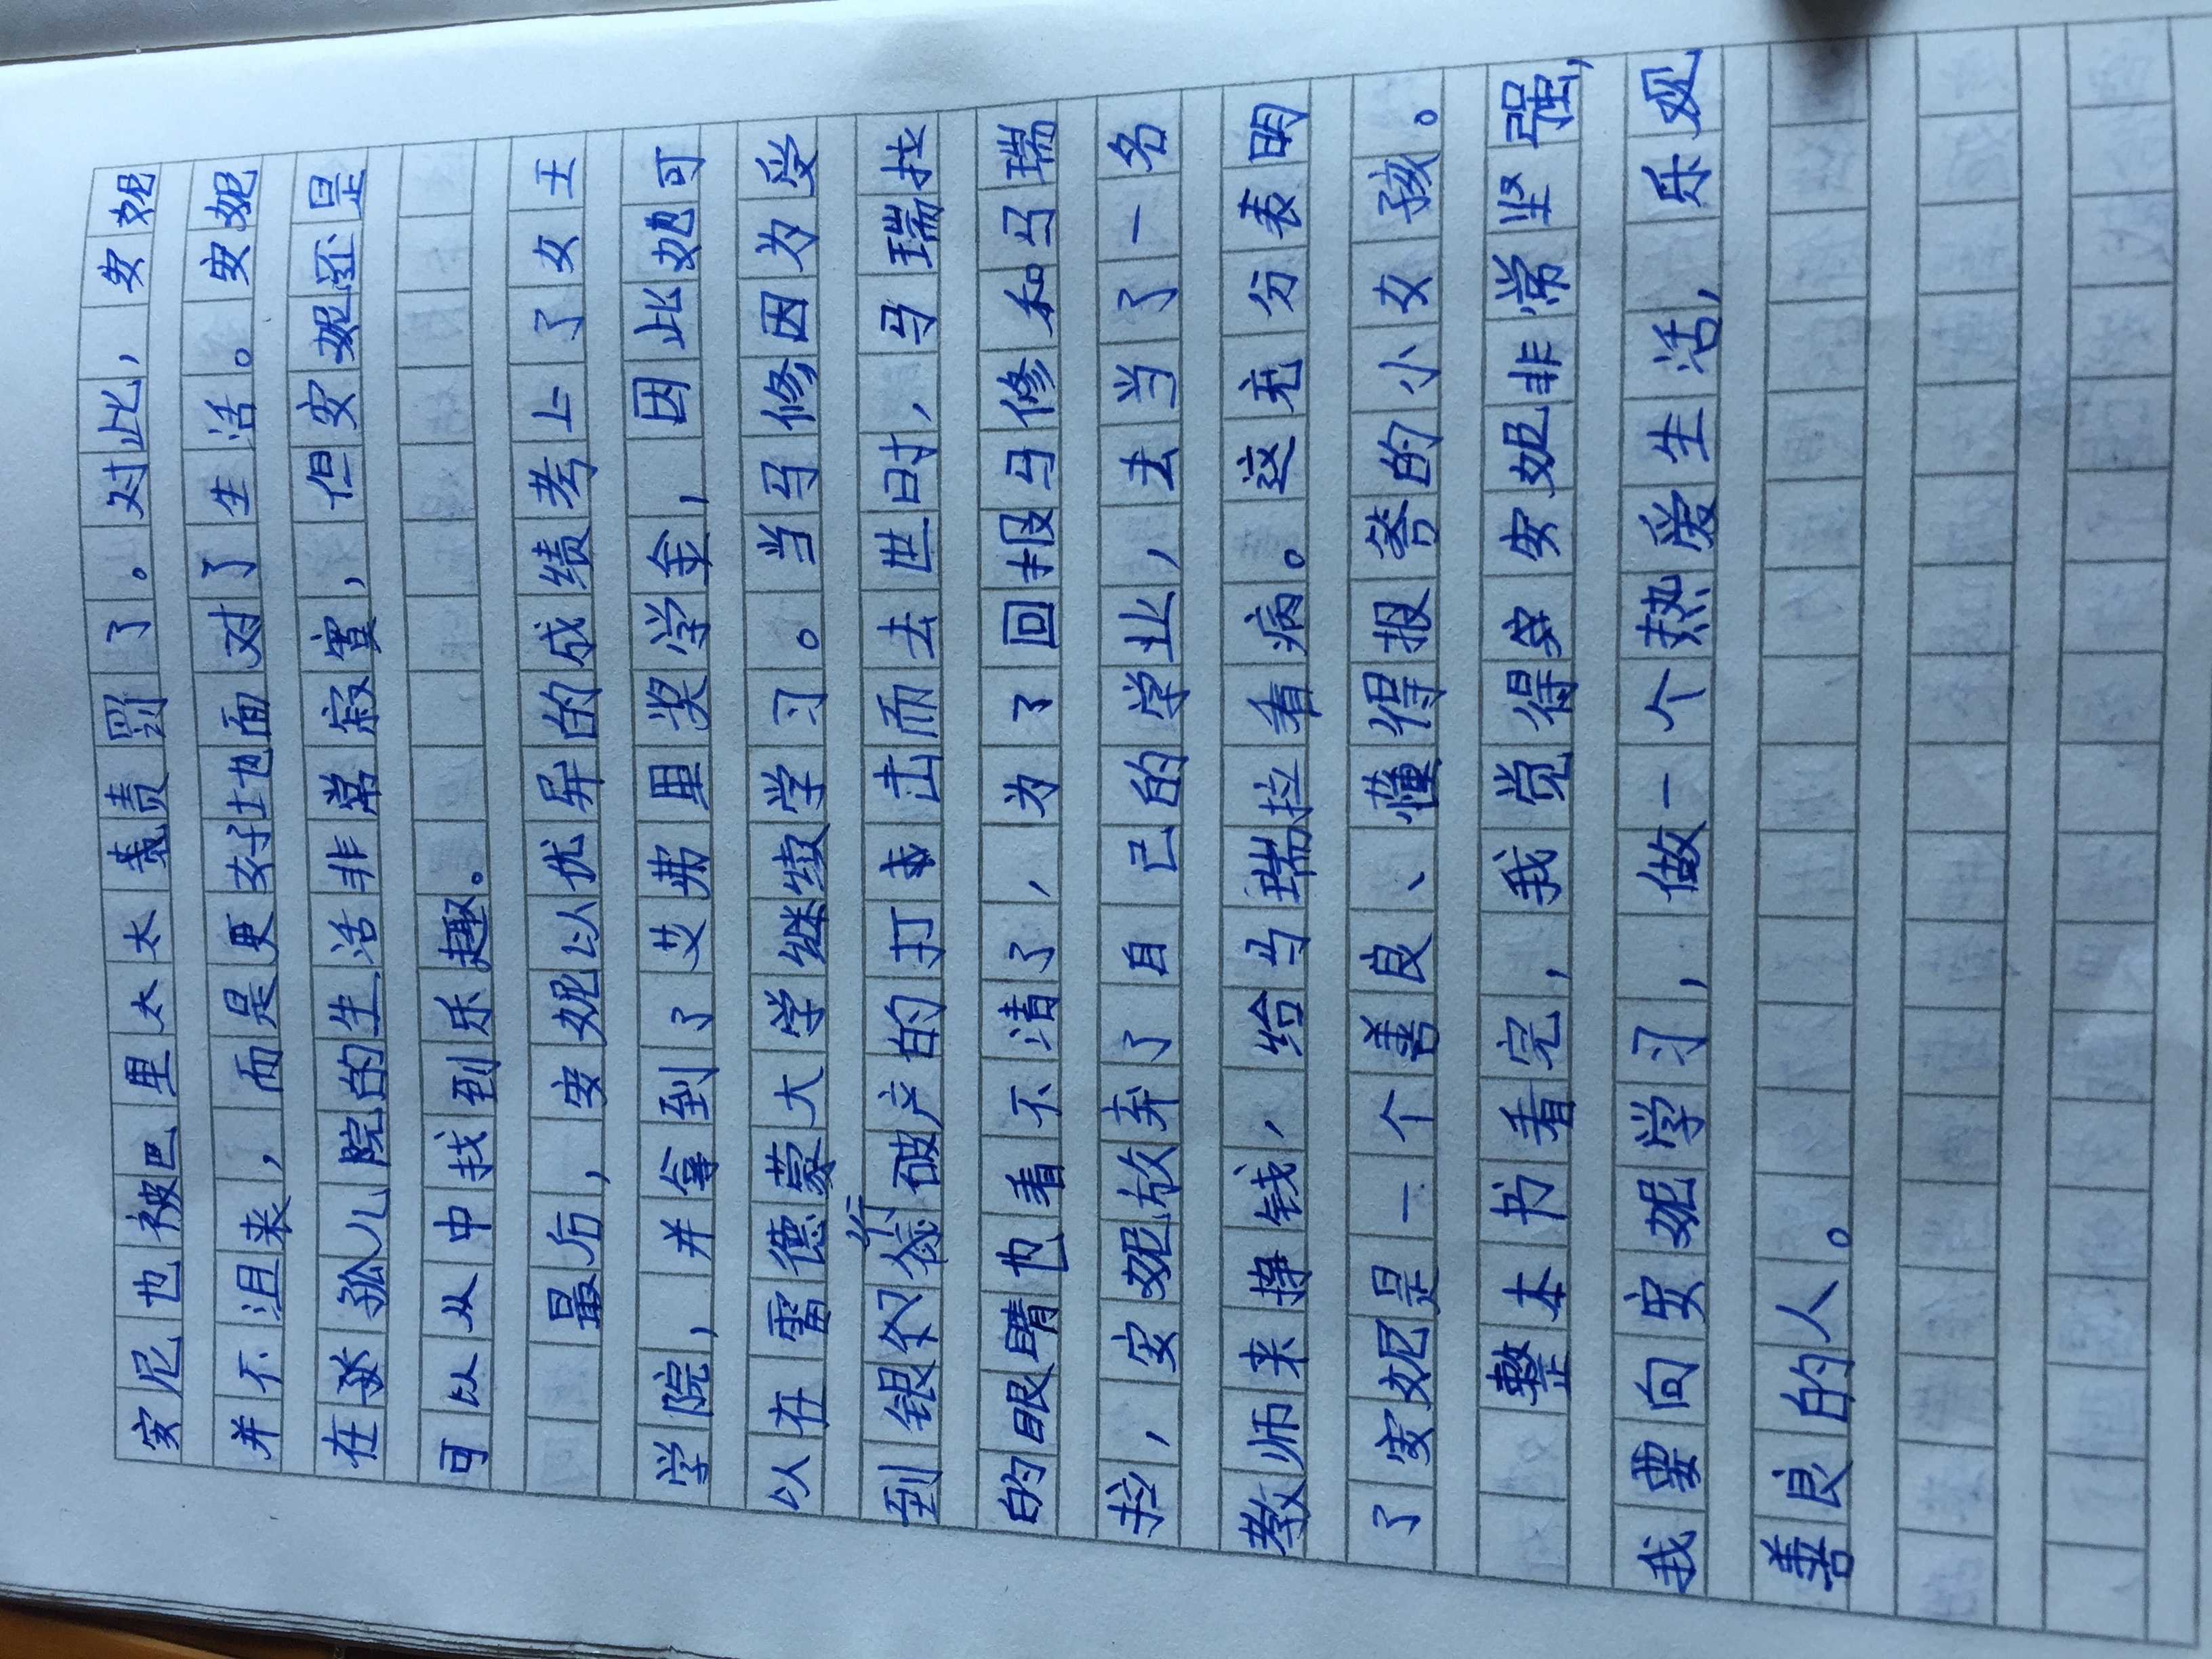 安尼也被巴里太太责罚了。对此，安妮
并不沮来，而是更好地面对了生活。安妮
在孤儿院的生活非常寂寞，但安妮还是
可以从中找到乐趣。
最后，安妮以优异的成绩考上了女士
学院，并拿到了艾弗里奖学金，因此她可
以在雷德蒙大学继续学习。当马修因为受
到银行破产的打击而去世时，马瑞拉
的眼睛也看不清了，为了回报马修和马瑞
拉，安妮放弃了自己的学业，去当了一名
教师来挣钱，给马瑞拉看病。这充分表明
了安妮是一个善良、懂得报答的小女孩。
整本书看完，我觉得安妮非常坚强，
我要向安妮学习，做一个热爱生活，乐观
善良的人。